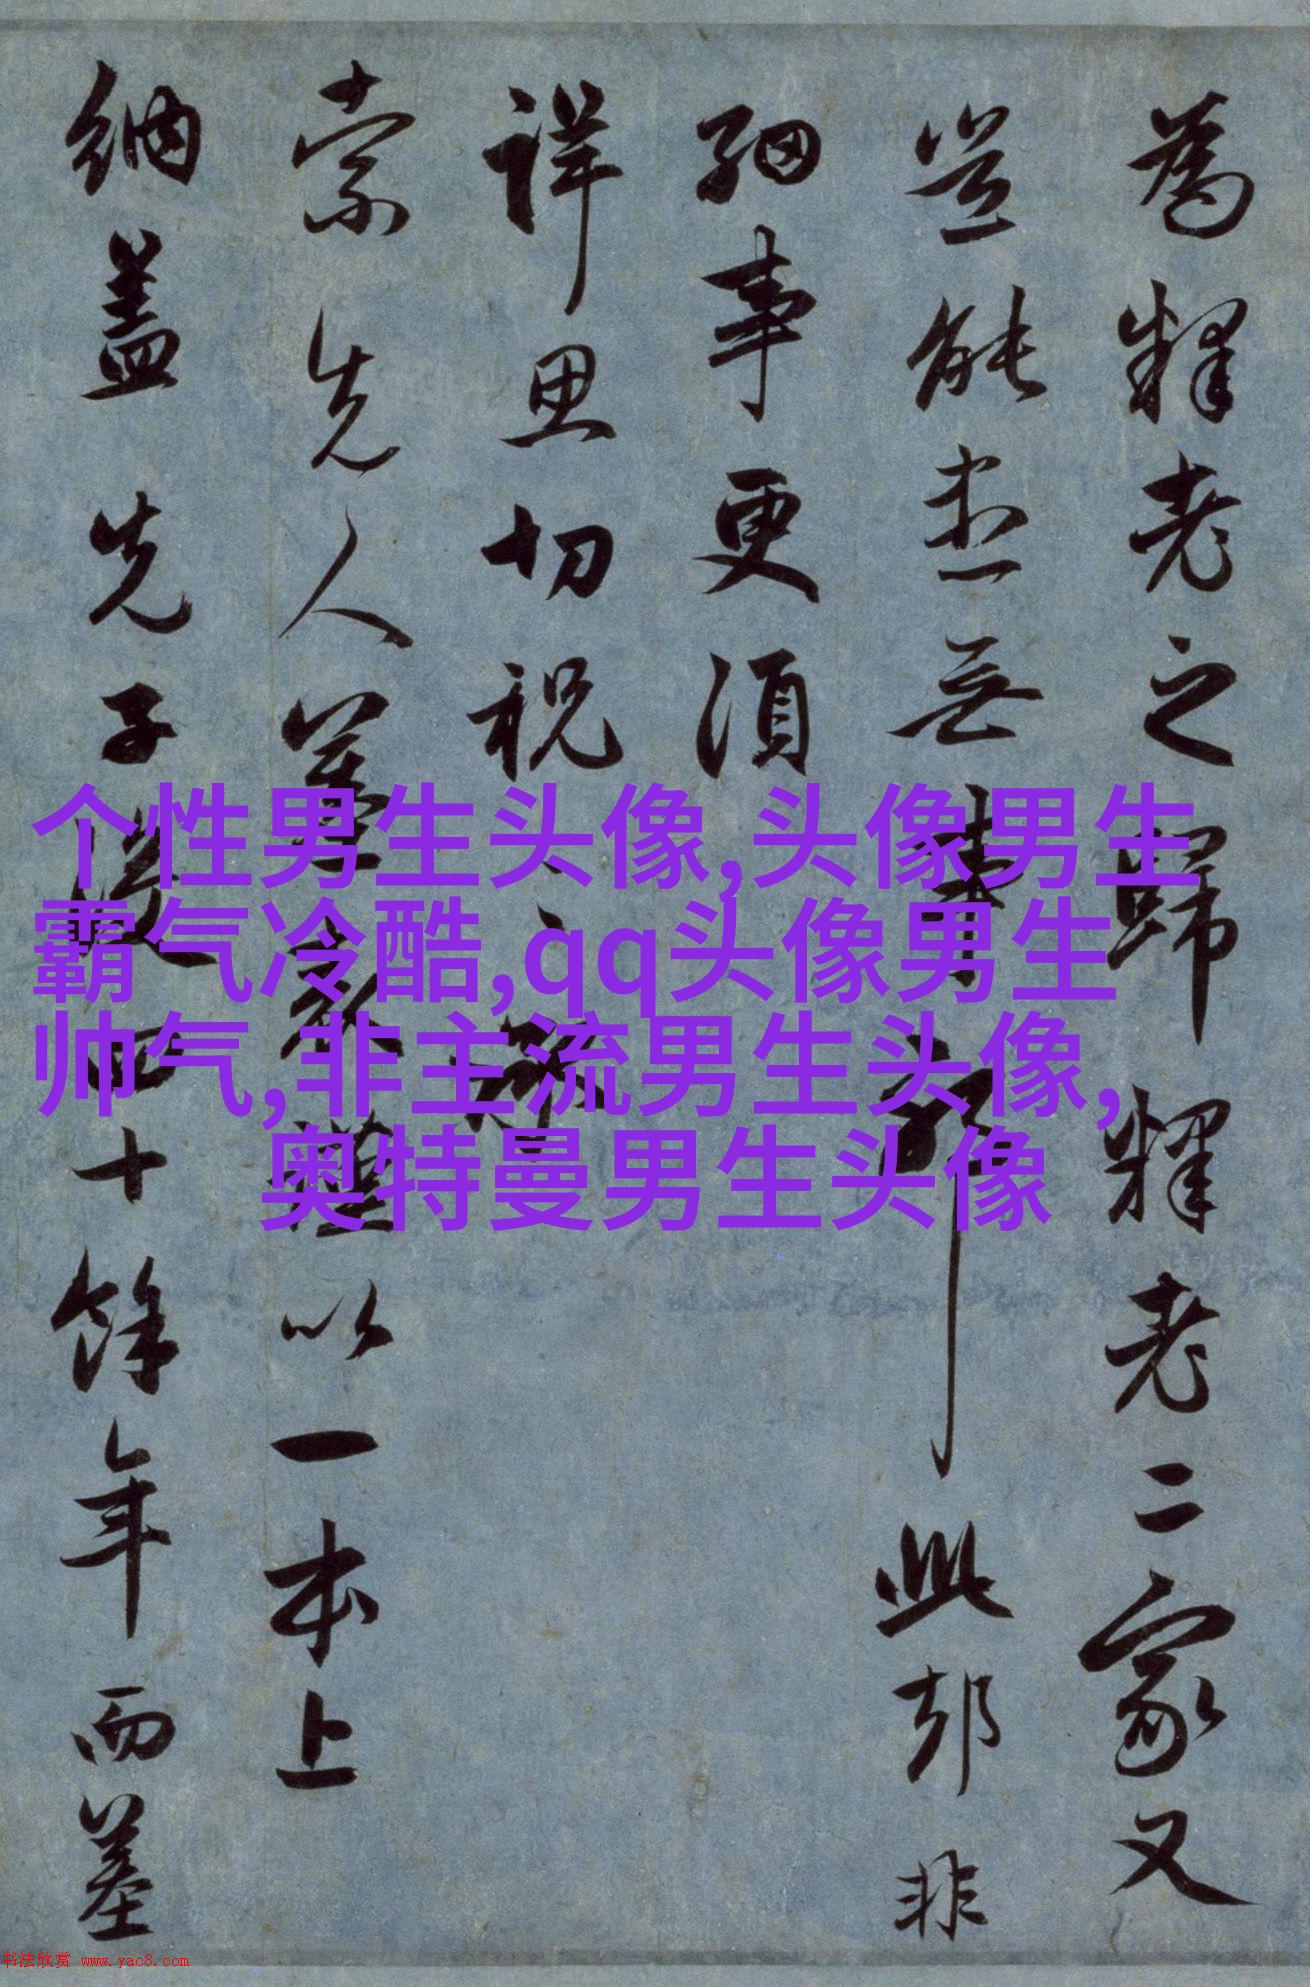 為釋老之歸釋老二家又
豈能患無事耶此部非
細事更須
詳思切祝
索先人墓表謹以一本上
納蓋先子沒四十餘年而墓
个性男生头像,头像男生
霸气冷酷,qq头像男生
帅气,非主流男生头像,
奥特曼男生头像
书法欣赏 www.yac8.com